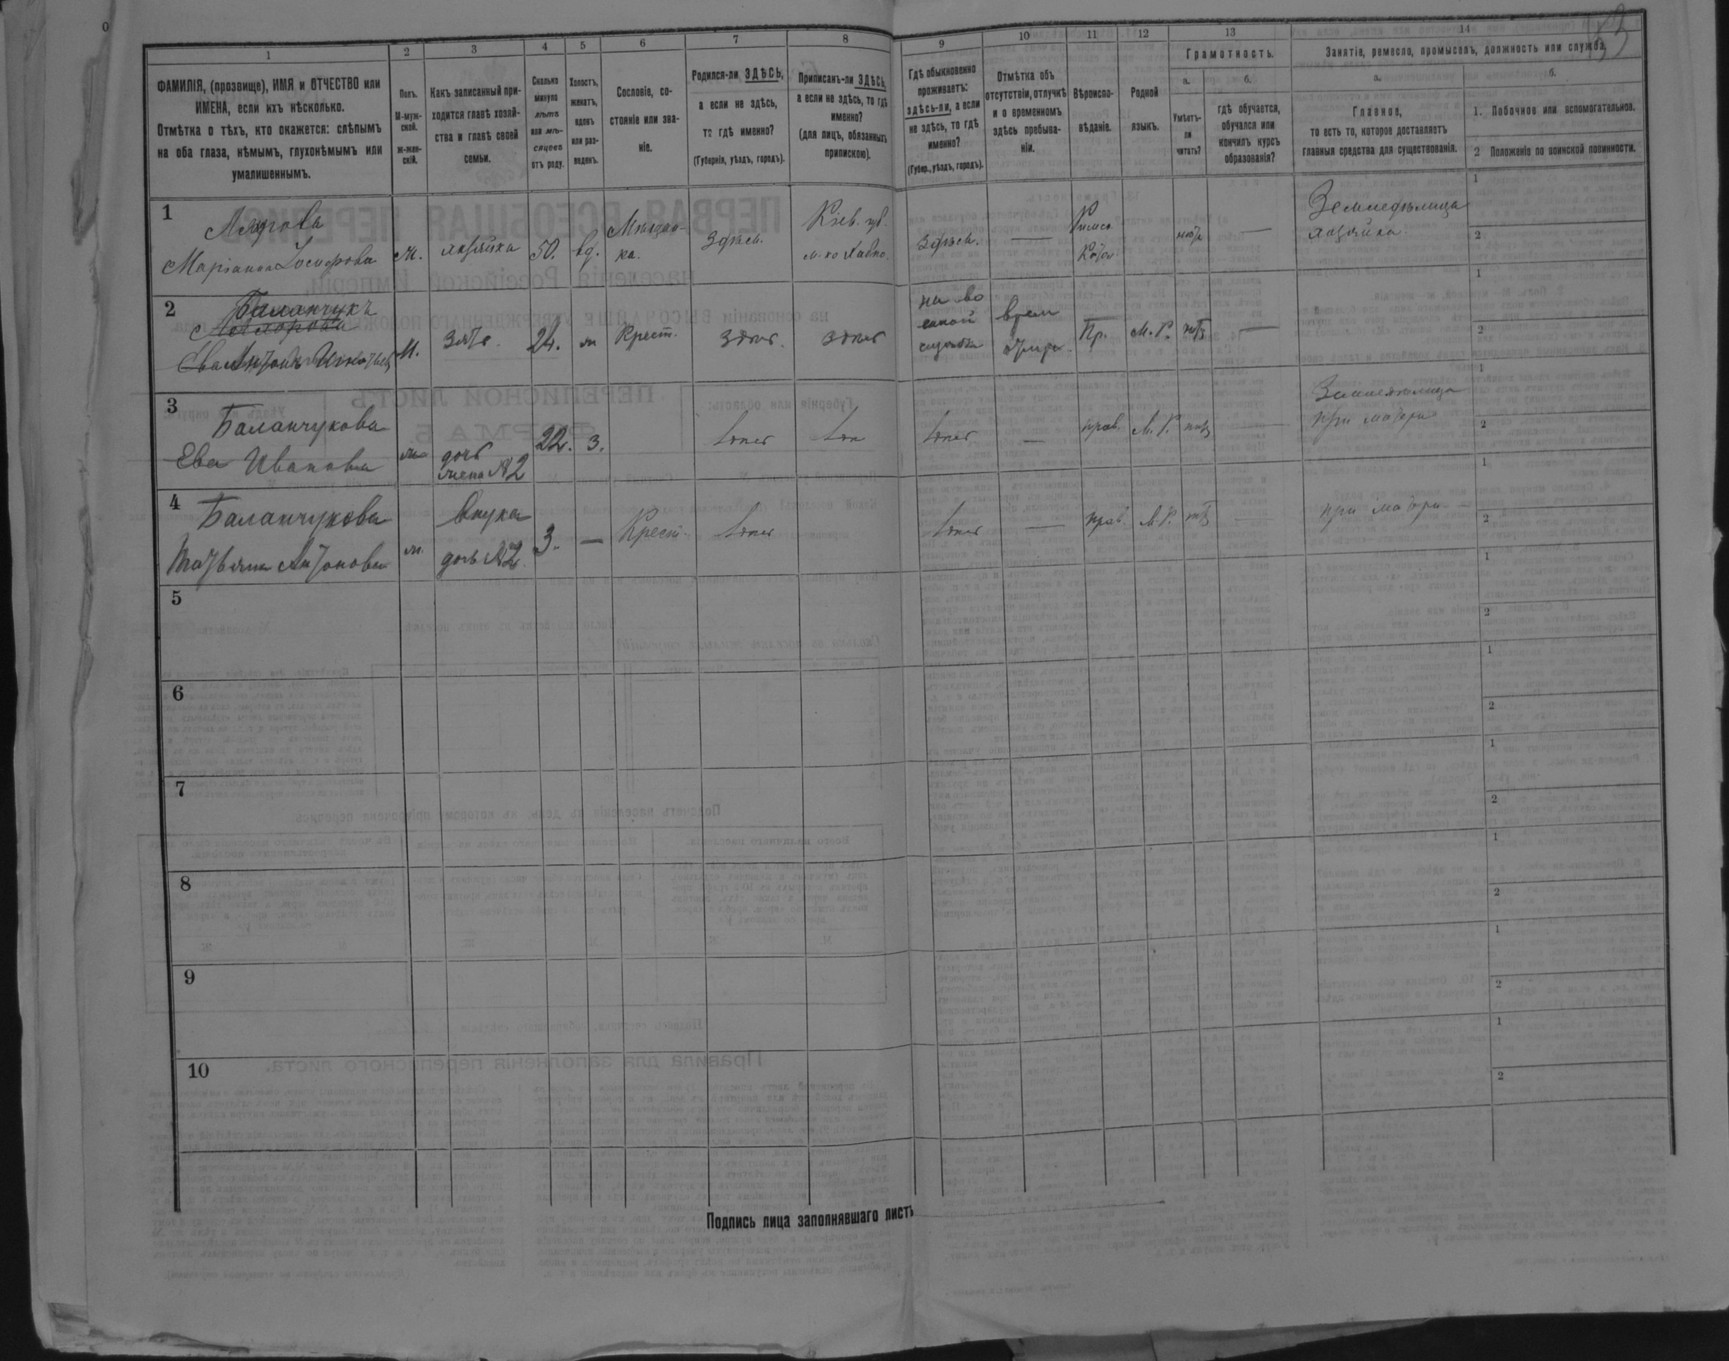 1
ФАМИЛІЯ, (прозвище), ИМЯ и ОТЧЕСТВО или
ИМЕНА, если ихъ нѣсколько.
Отмѣтка о тѣхъ, кто окажется: слѣпымъ
на оба глаза, нѣмымъ, глухонѣмымъ или
умалишеннымъ.
2
Полъ.
М-муж-
ской.
ж-жен-
скій.
3
Какъ записанный при-
ходится главѣ хозяй-
ства и главѣ своей
семьи.
4
Сколько
минуло
лѣтъ
или мѣ-
сяцевъ
отъ роду.
5
Холостъ,
женатъ,
вдовъ
или раз-
веденъ.
6
Сословіе, со-
стояніе или зва-
ніе.
7
Родился-ли ЗДѢСЬ,
а если не здѣсь,
то гдѣ именно?
(Губернія, уѣздъ, городъ).
8
Приписанъ-ли ЗДѢСЬ,
а если не здѣсь, то гдѣ
именно?
(для лицъ, обязанныхъ
припискою).
9
Гдѣ обыкновенно
проживаетъ:
здѣсь-ли, а если
не здѣсь, то гдѣ
именно?
(Губер., уѣздъ, городъ).
10
Отмѣтка объ
отсутствіи, отлучкѣ
и о временномъ
здѣсь пребыва-
ніи.
11
Вѣроиспо-
вѣданіе.
12
Родной
языкъ.
13
Грамотность.
а.
Умѣетъ-
ли
читать?
б.
гдѣ обучается,
обучался или
кончилъ курсъ
образованія?
14
Занятіе, ремесло, промыселъ, должность или служба.
а.
Главное,
то есть то, которое доставляетъ
главныя средства для существованія.
б.
1. Побочное или вспомогательное.
2 Положеніе по воинской повинности.
53
1
Маріанна Іосифова
хозяйка
50.
вд.
Мѣщан-
ка.
Здѣсь.
Кіев. губ.
Здѣсь.
—
Римск
Катол
нѣтъ
—
Земледѣлица
хозяйка
1
2
2
Баланчукъ
Антонъ Игнатьевъ
М.
Зять.
24.
ж
Крест.
здѣсь
здѣсь
на во
енной
службѣ
врем
отлуч.
Пр.
М. Р.
нѣтъ
—
1
2
3
Баланчукова
Ева Иванова
ж
дочь
жена №2
22.
з.
тоже
тоже
—
прав.
М. Р.
нѣтъ
—
Земледѣлица
при матери
1
2
4
Баланчукова
Татьяна Антонова
ж
внука
дочь №2
3.
—
Крест.
тоже
тоже
—
прав
М. Р.
нѣтъ
при матери
1
2
5
1
2
6
1
2
7
1
2
8
1
2
9
1
2
10
1
2
Подпись лица заполнявшаго листъ